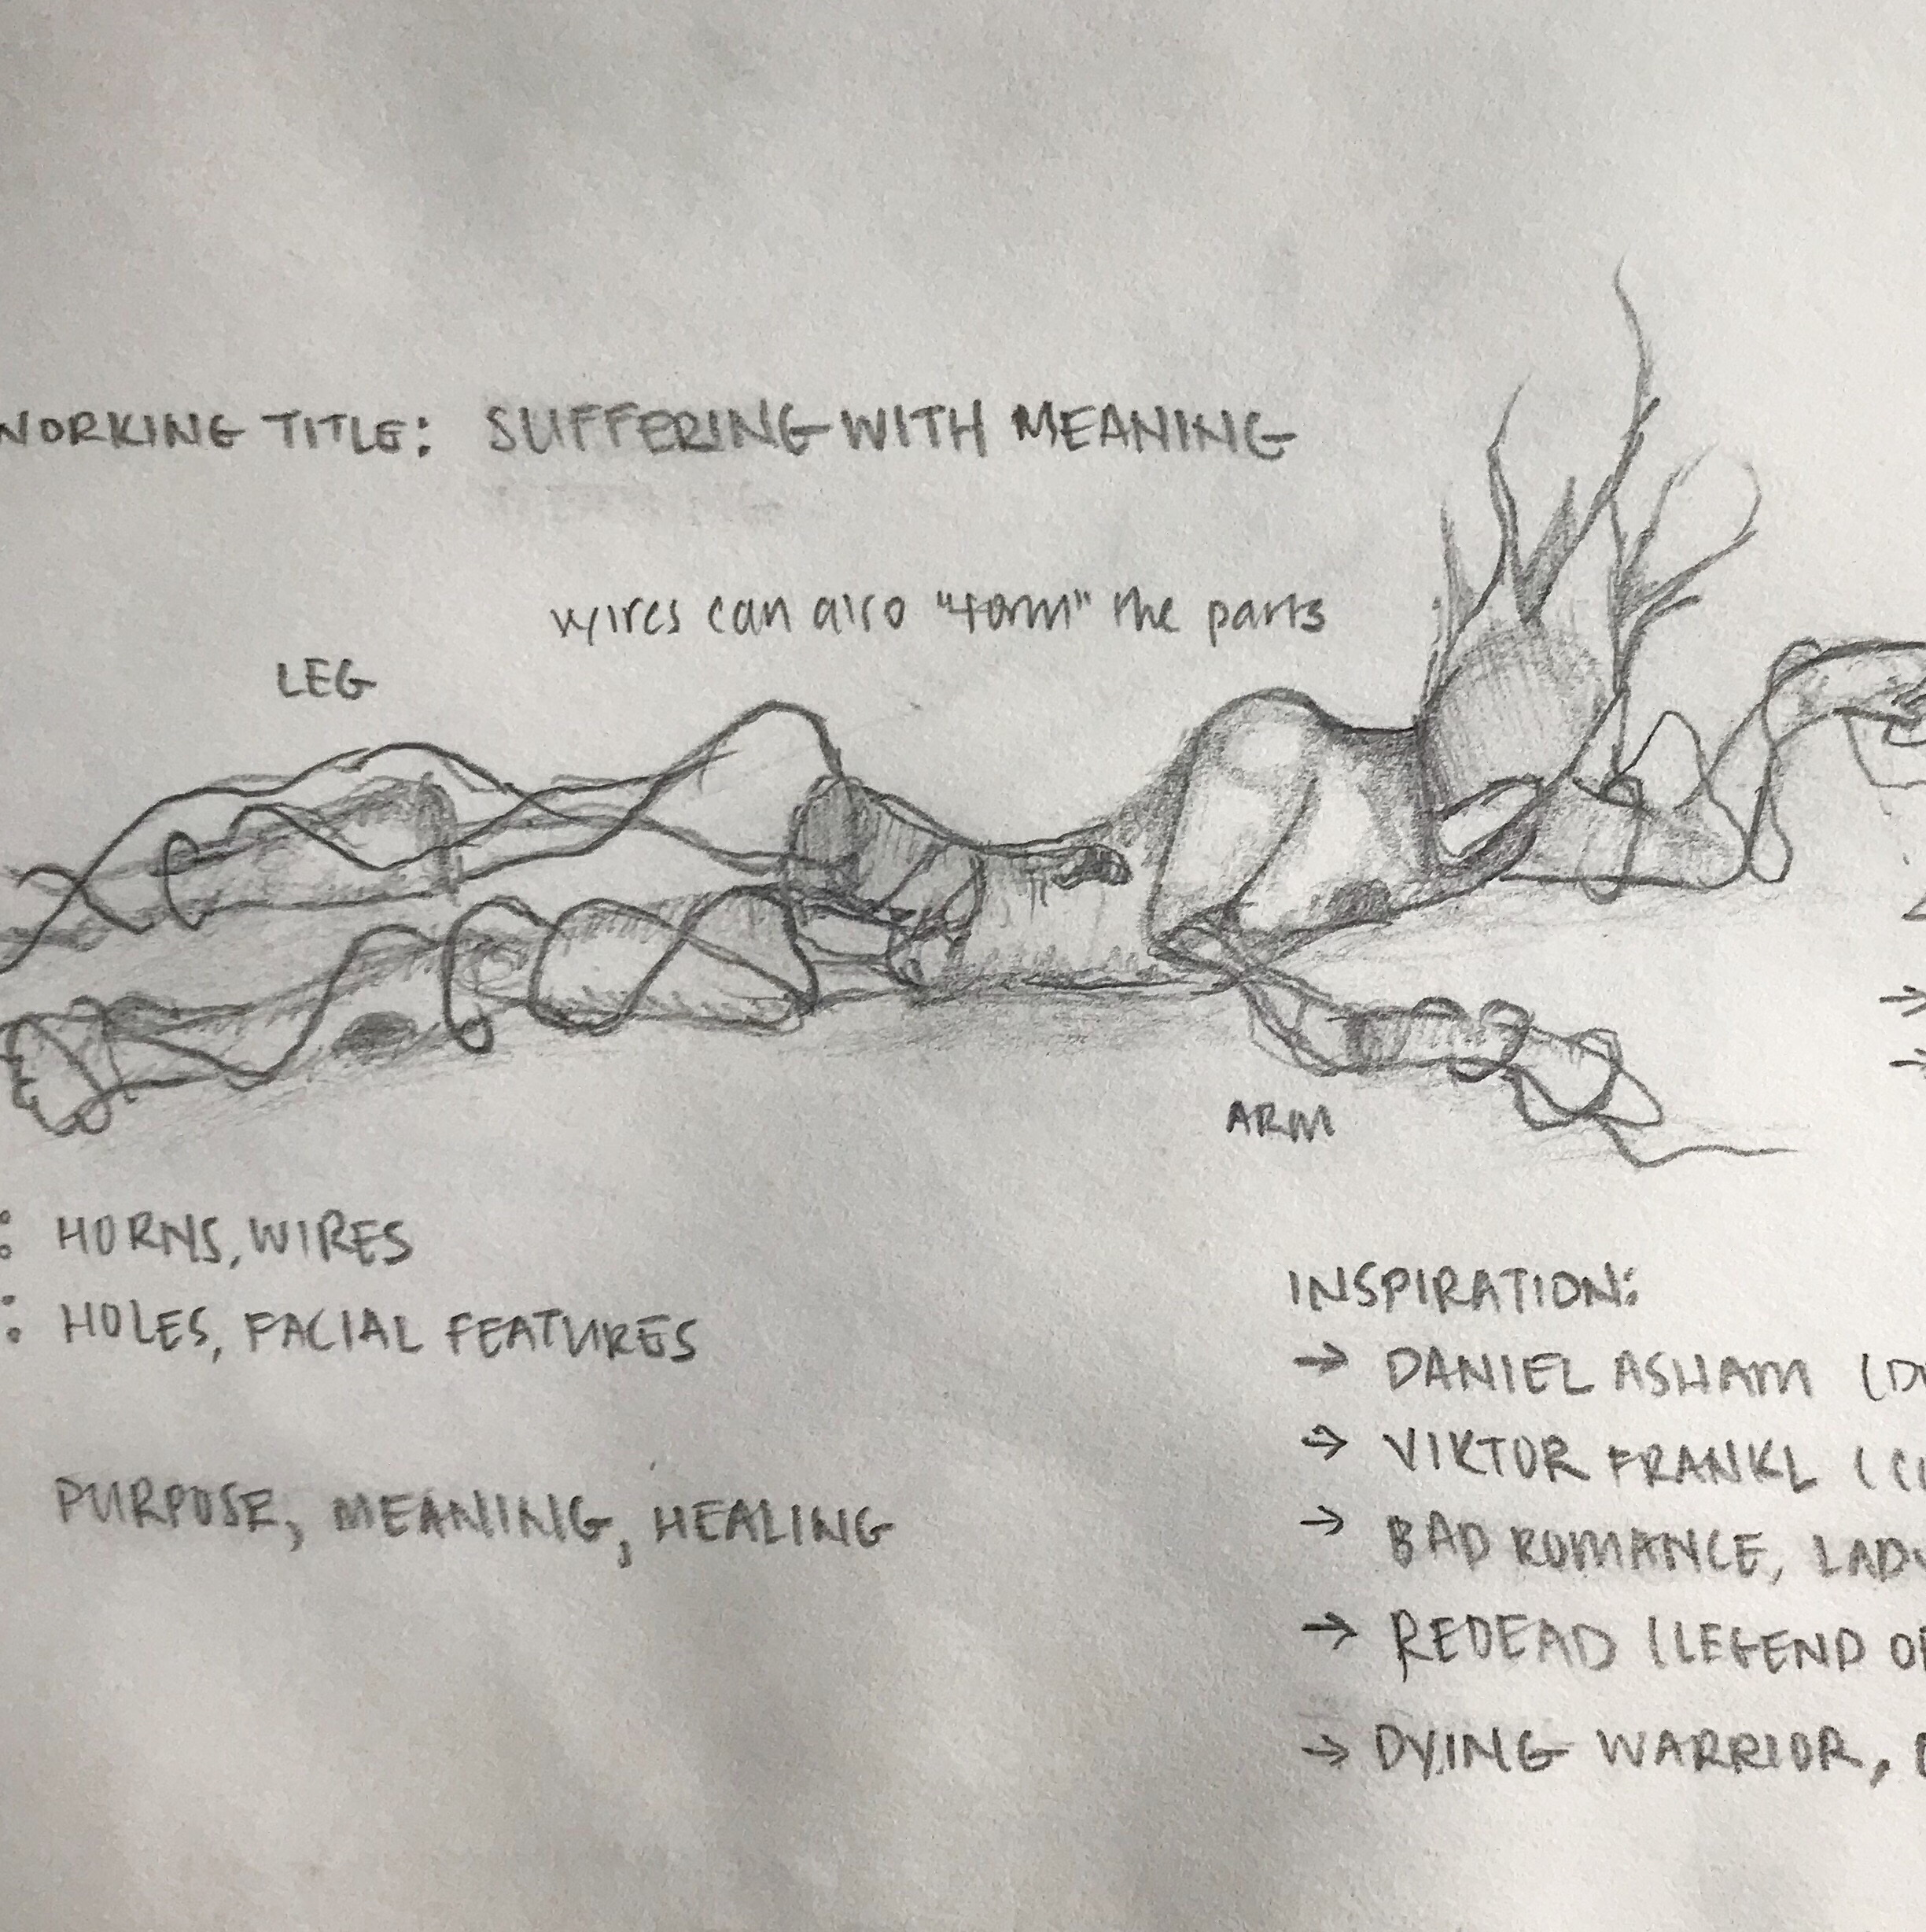 WORKING TITLE: SUFFERING WITH MEANING
wires can also "form" the parts
LEG
ARM
: HORNS, WIRES
: HOLES, FACIAL FEATURES
PURPOSE, MEANING, HEALING
INSPIRATION:
→ DANIEL ASHAM (
→ VIKTOR FRANKL (
→ BAD ROMANCE, LADY
→ REDEAD (LEGEND OF
→ DYING WARRIOR,